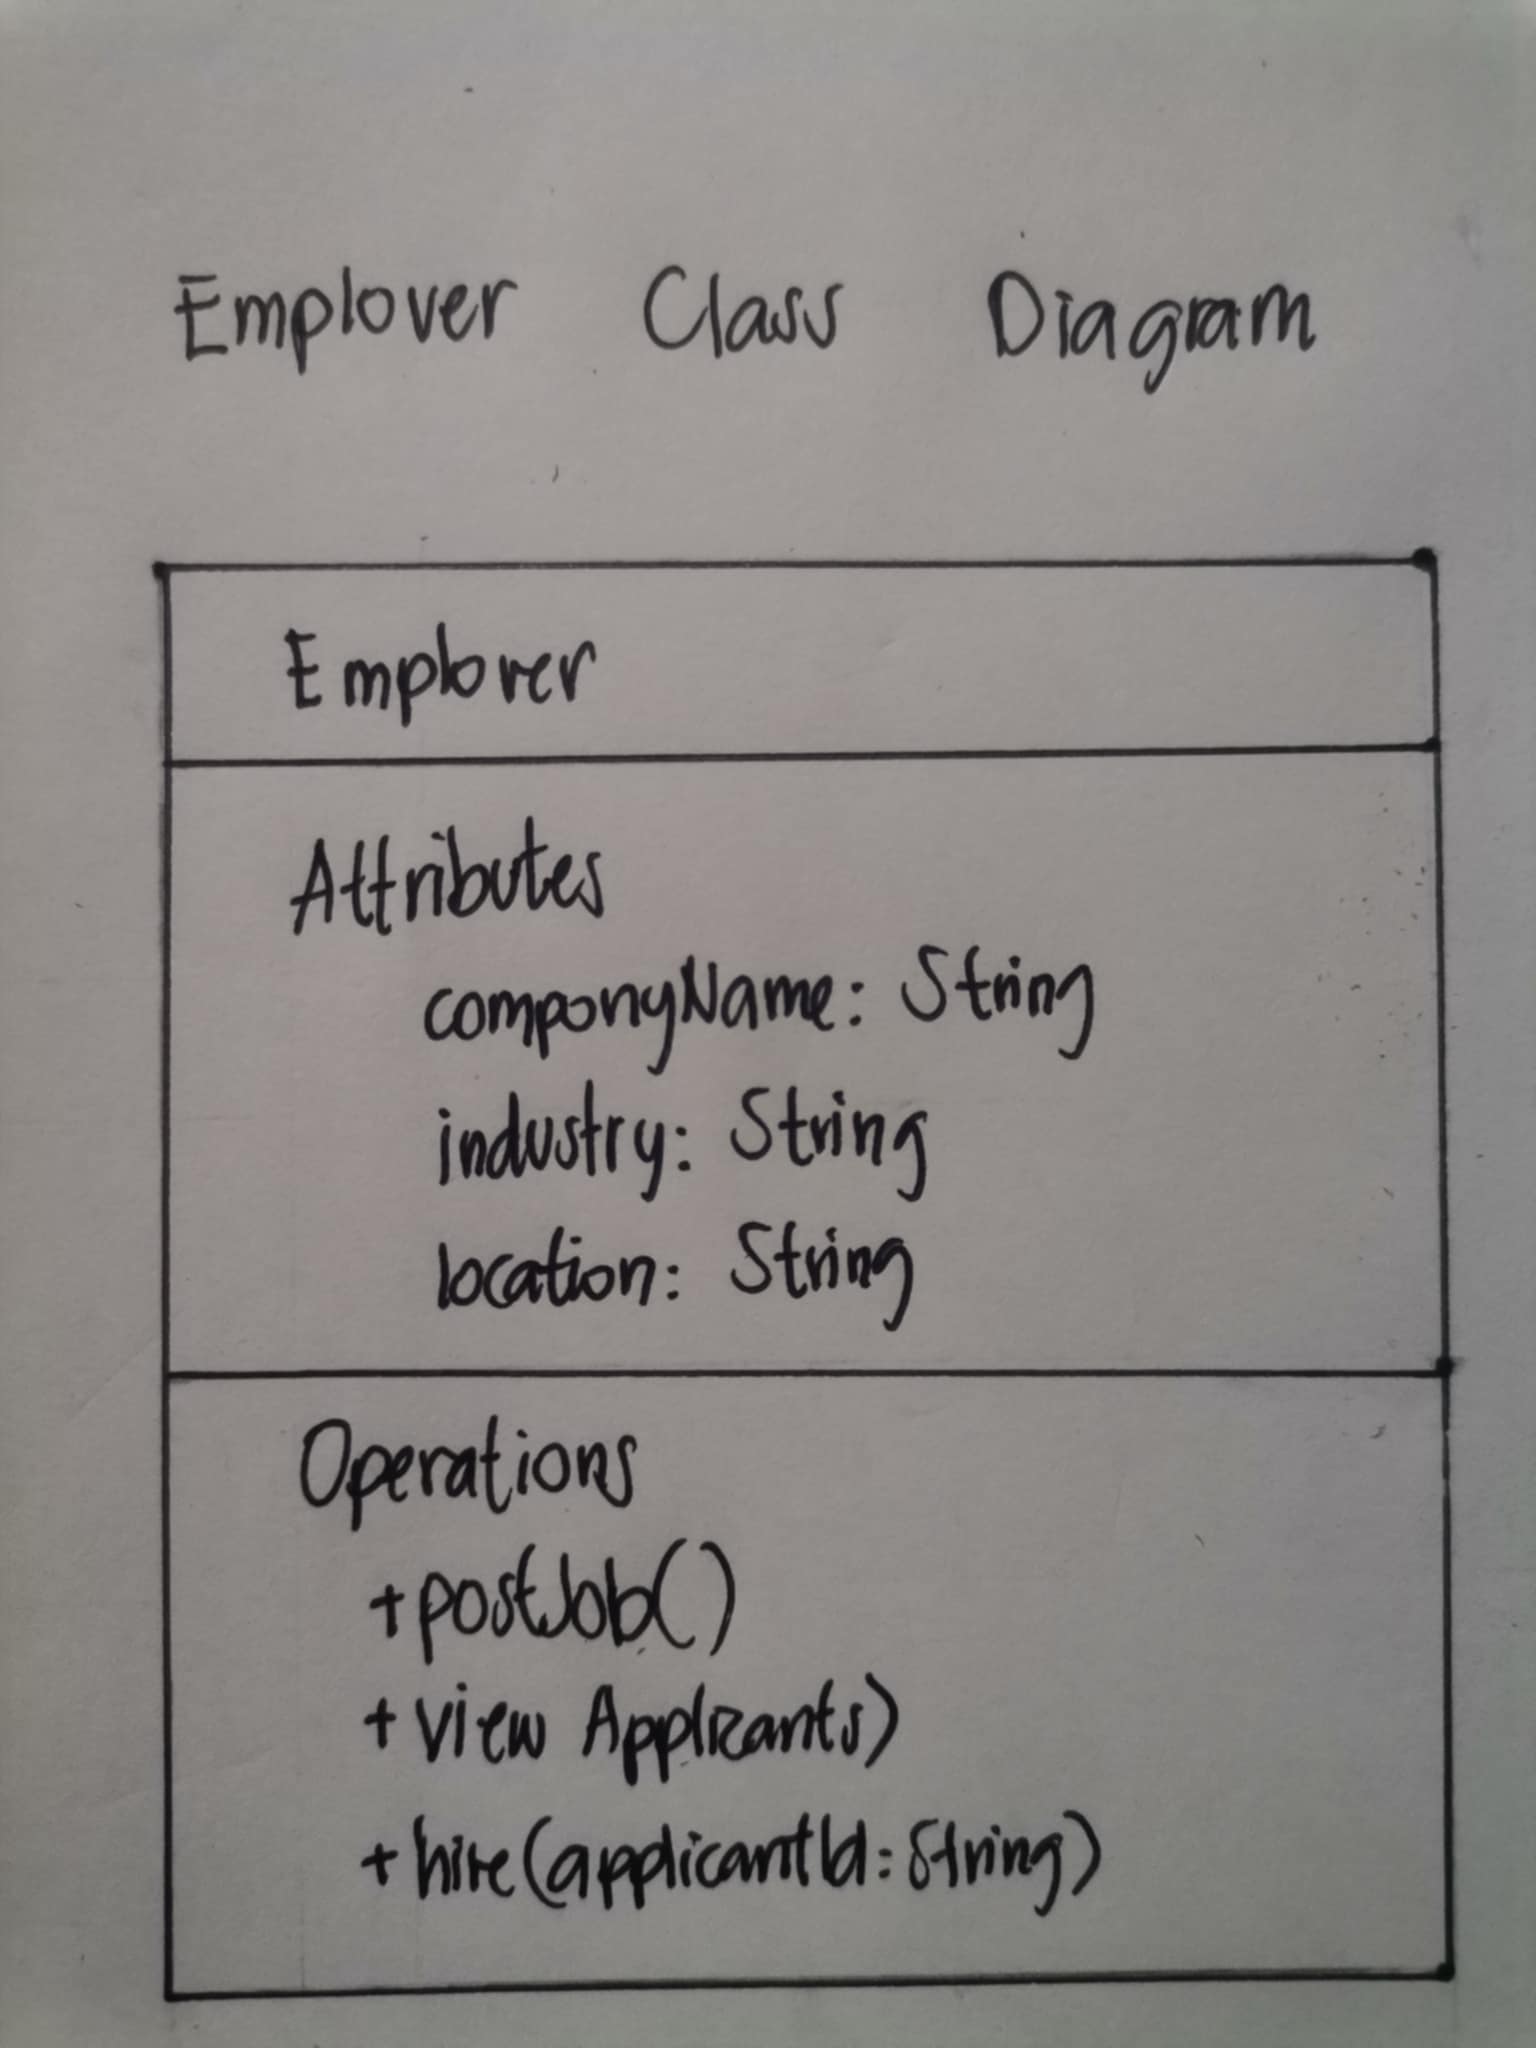 Emplover Class Diagram
Emplover
Attributes
componyName: String
industry: String
location: String
Operations
+postJob()
+view Applicants)
+hire(applicantId: String)